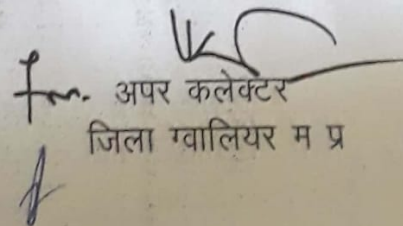 अपर कलेक्टर
जिला ग्वालियर म प्र